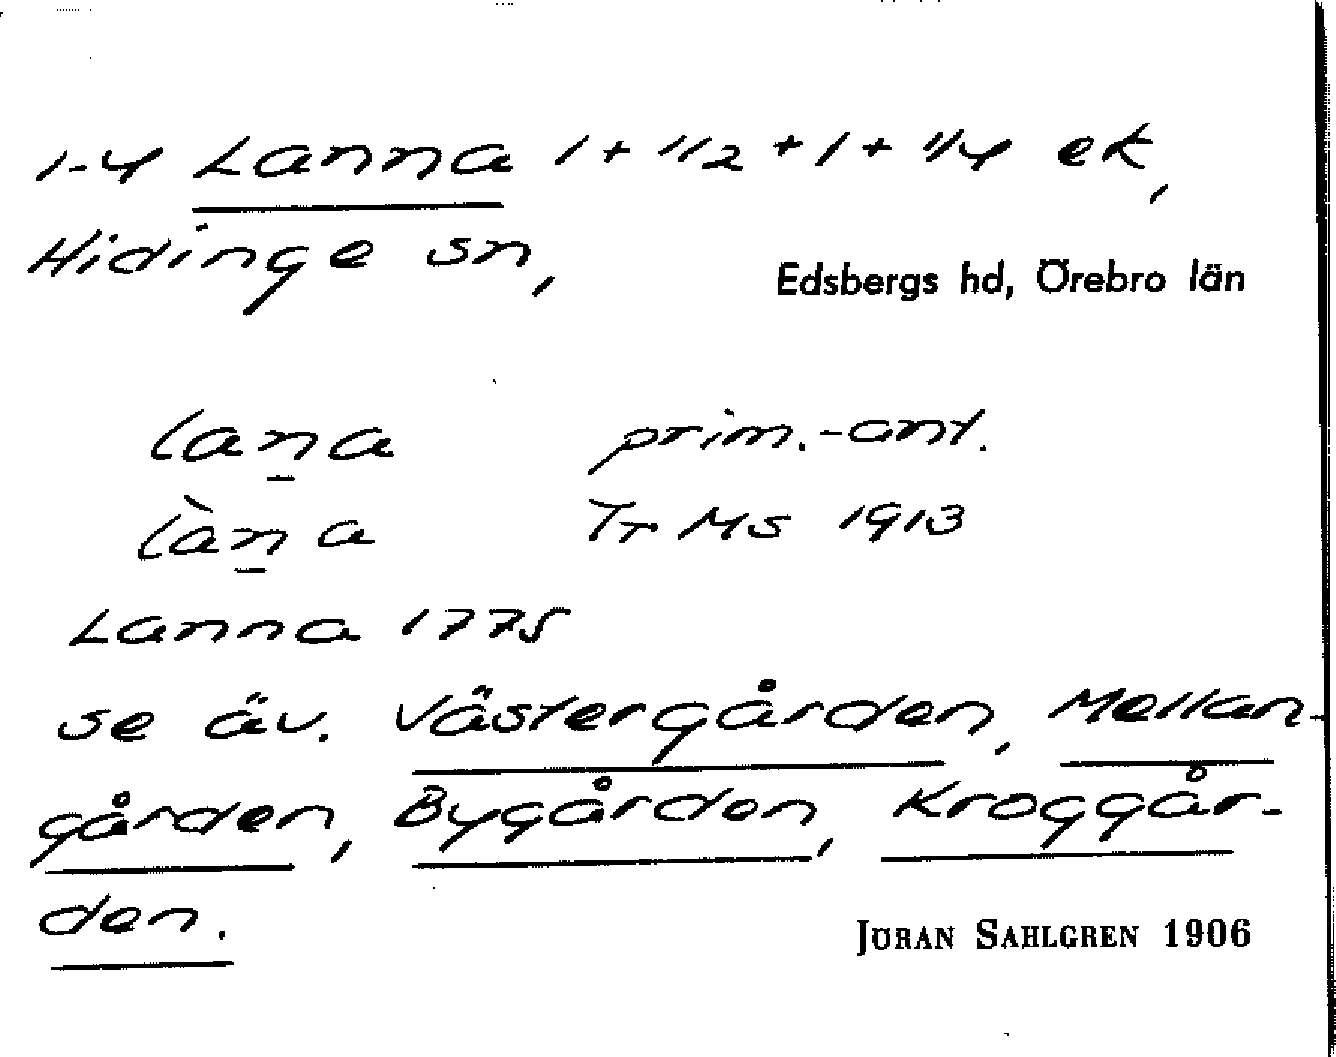 1-4 Lanna 1 + 1/2 + 1 + 1/4 ek,
Hidinge sn,
Edsbergs hd, Örebro län
lana prim.-ant.
làna Tr MS 1913
Lanna 1775
se äv. Västergården, Mellan-
gården, Bygården, Kroggår-
den.
JÖRAN SAHLGREN 1906